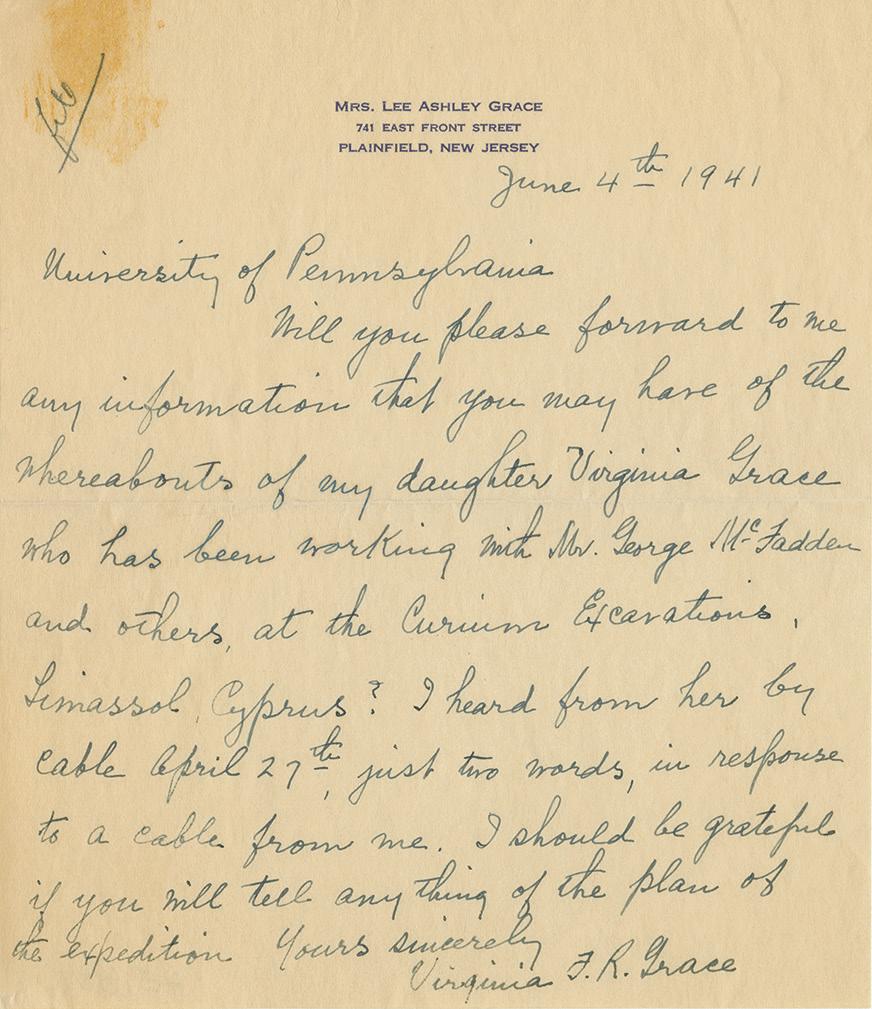 file
MRS. LEE ASHLEY GRACE
741 EAST FRONT STREET
PLAINFIELD, NEW JERSEY
June 4th 1941
University of Pennsylvania
Will you please forward to me
any information that you may have of the
whereabouts of my daughter Virginia Grace
who has been working with Mr. George McFadden
and others, at the Curium Excavations,
Limassol, Cyprus? I heard from her by
cable April 27th, just two words, in response
to a cable from me. I should be grateful
if you will tell any thing of the plan of
the expedition Yours sincerely
Virginia F. R. Grace